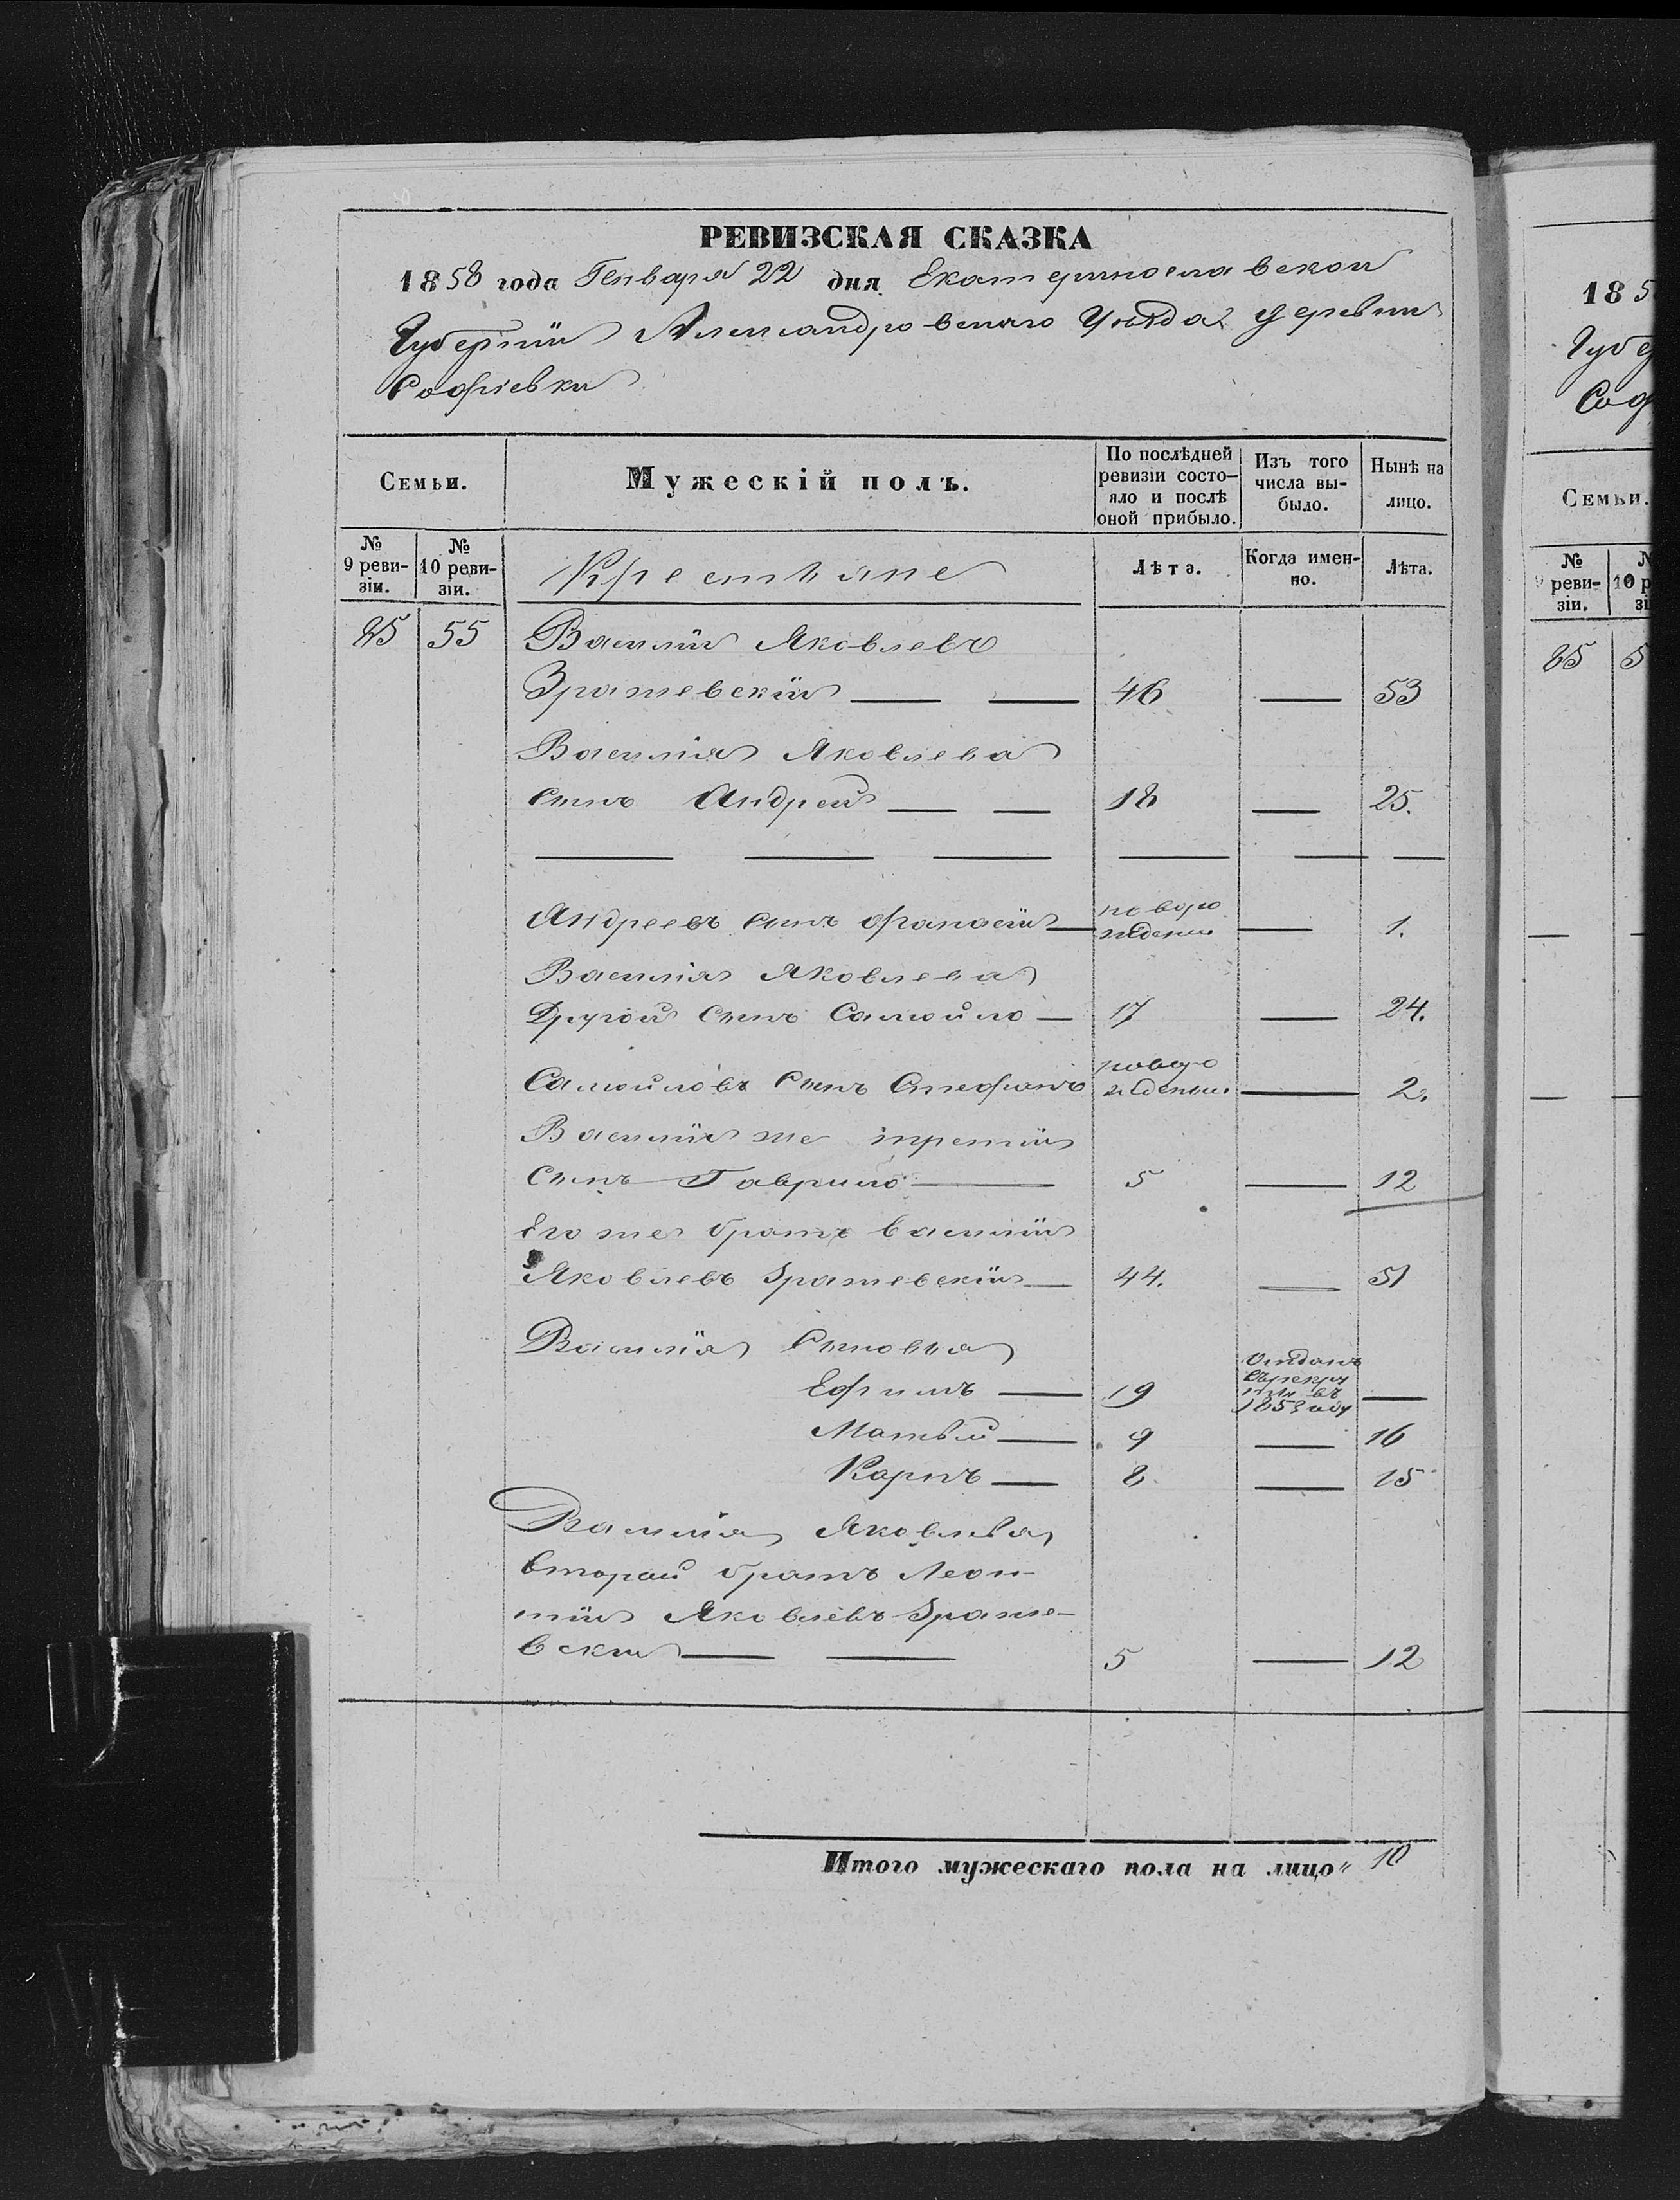 РЕВИЗСКАЯ СКАЗКА
1858 года Генваря 22 дня Екатеринославской
Губернии Александровскаго Уѣзда деревни
Софіевки
Семьи.
Мужескій полъ.
По послѣдней ревизіи состо-
яло и послѣ оной прибыло.
Изъ того числа вы-
было.
Нынѣ на лицо.
№ 9 реви-
зіи.
№ 10 реви-
зіи.
Крестьяне
Лѣта.
Когда имен-
но.
Лѣта.
85 55 Василій Яковлевъ
46 — 53
Василія Яковлева
сынъ Андрей — — 18 — 25.
Андреевъ сынъ Афанасій — новоро
жденный — 1.
Василія Яковлева
Другой сынъ Самойло — 17 — 24.
Самойловъ сынъ Стефанъ новоро
жденный — 2.
Василія же третій
сынъ Гаврило — 5 — 12
Его же братъ Василій
Яковлевъ — 44. — 51
Василія Сыновья
Ефимъ — 19 Отданъ
въ рекру
ты въ
185 году —
Матвѣй — 9 — 16
Карпъ — 8 — 15
Василія Яковлева
второй братъ Леон-
тій Яковлевъ
5 — 12
Итого мужескаго пола на лицо " 10
18 5
Губе
Соф
Семьи.
№ 9 реви-
зіи.
85 5